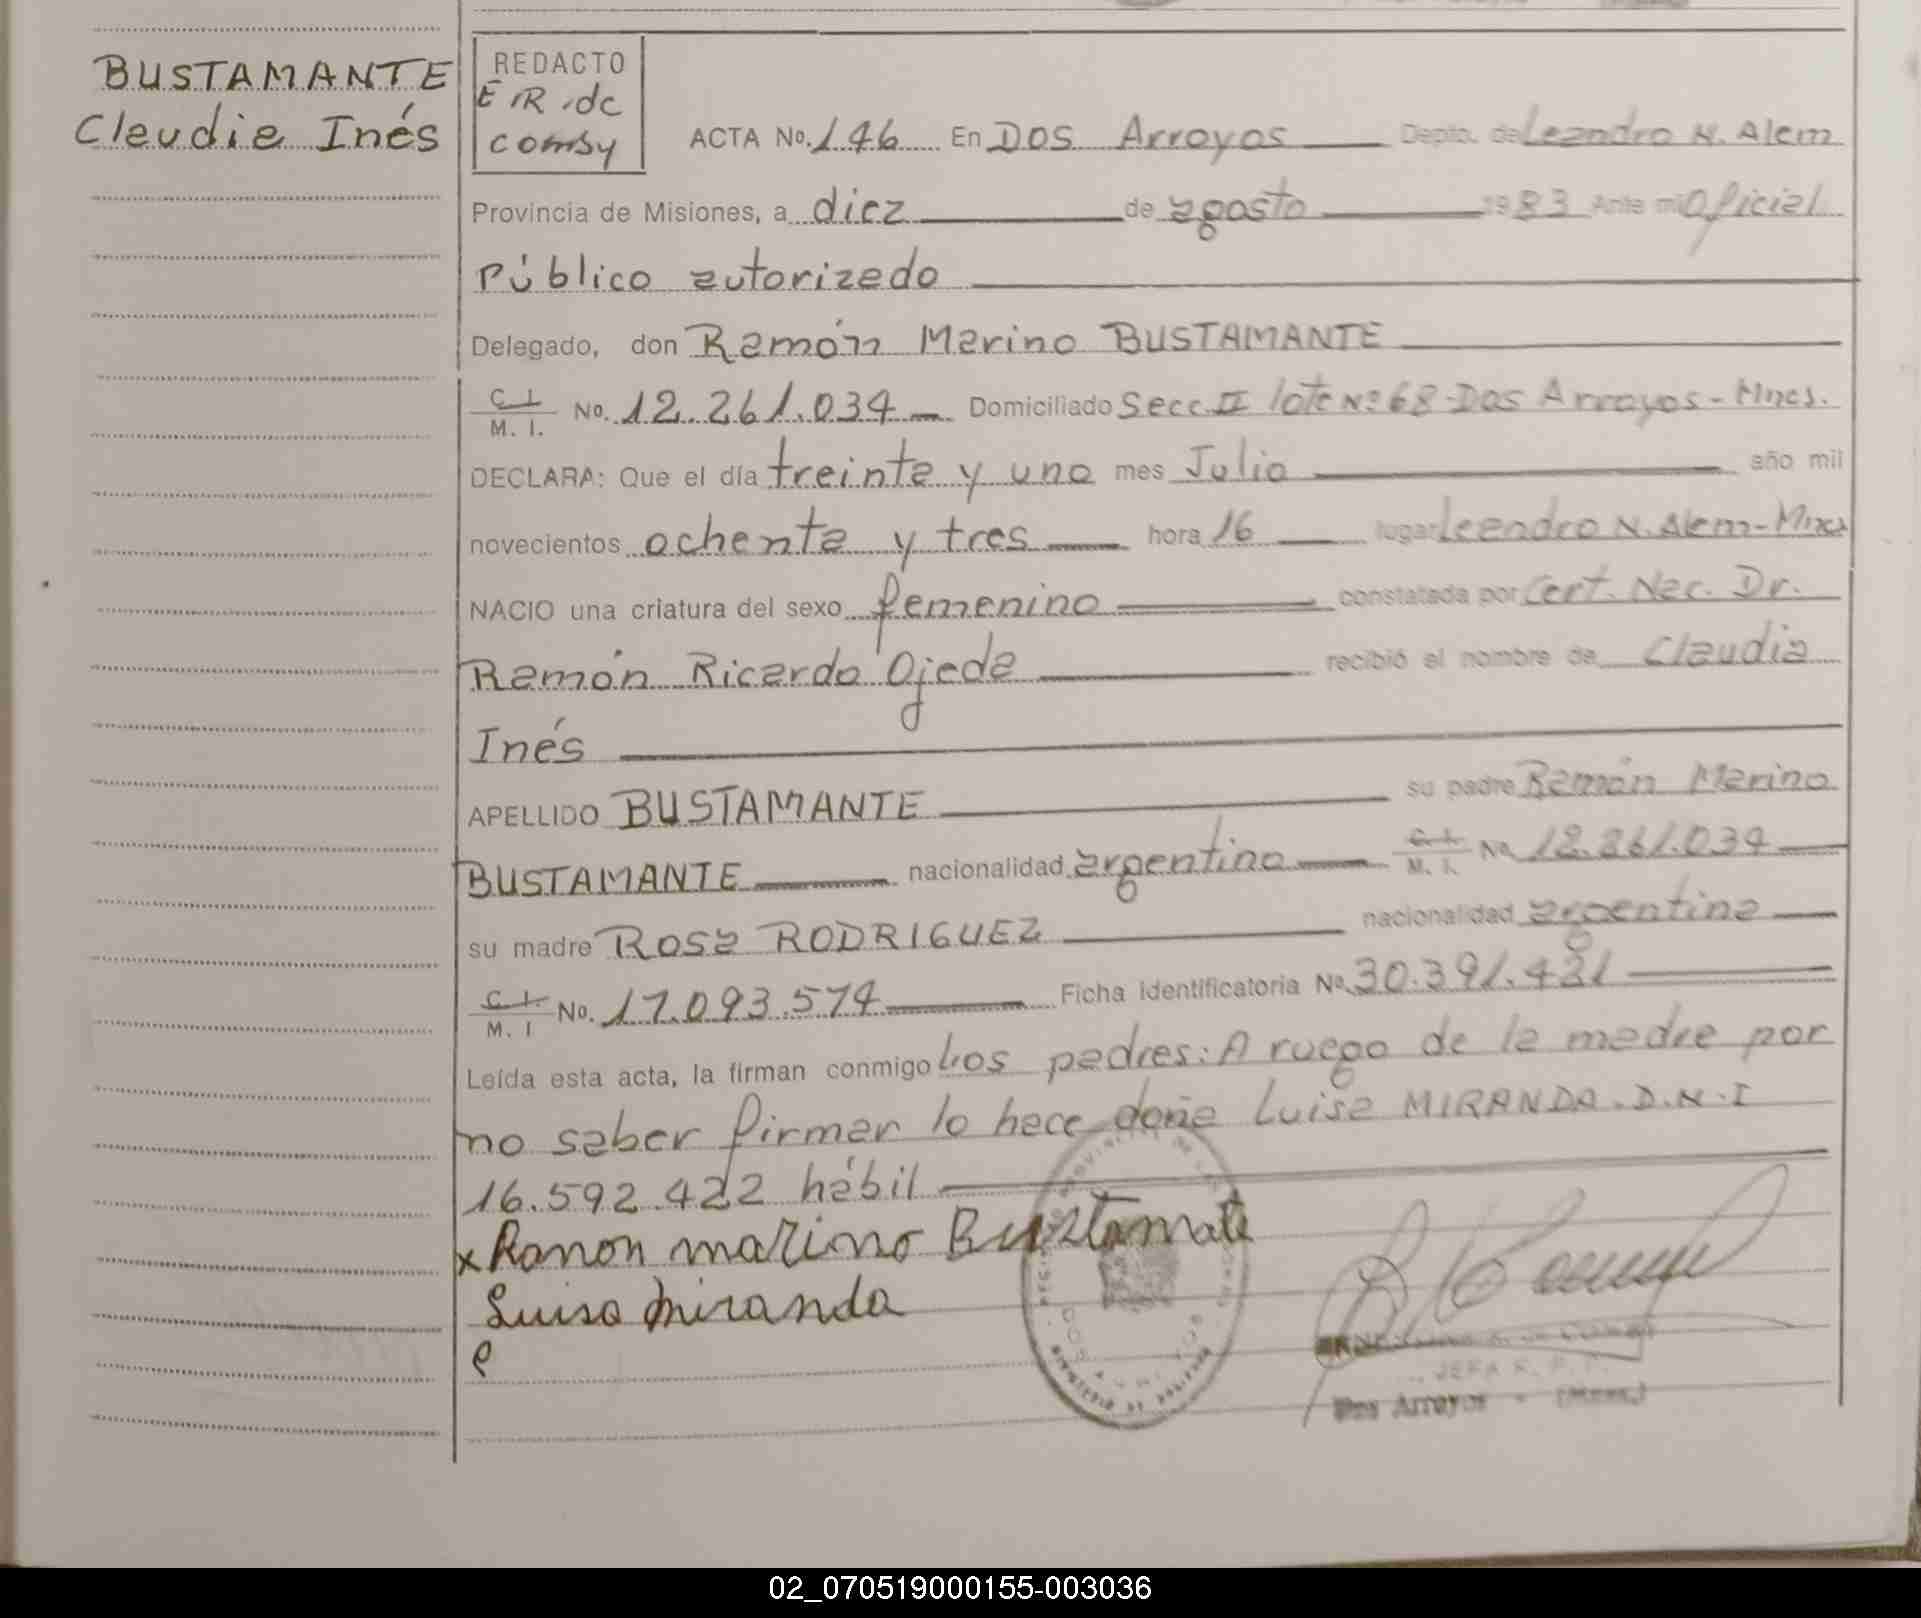 BUSTAMANTE
Claudia Inés
REDACTO
E.R.dc
comsy
ACTA No. 146 En Dos Arroyos Depto. de Leandro N. Alem
Provincia de Misiones, a diez de agosto 1983 Ante mi Oficial
Público autorizado
Delegado, don Ramón Marino BUSTAMANTE
C. I.
M. I. No. 12.261.034 Domiciliado Secc. II lote Nº 68-Dos Arroyos-Mnes.
DECLARA: Que el día treinta y uno mes Julio año mil
novecientos ochenta y tres hora 16 lugar Leandro N. Alem-Mnes
NACIO una criatura del sexo femenino constatada por Cert. Nac. Dr.
Ramón Ricardo Ojeda recibió el nombre de Claudia
Inés
APELLIDO BUSTAMANTE su padre Ramón Marino
BUSTAMANTE nacionalidad argentino C. I. M. I. No 12.261.034
su madre Rosa RODRIGUEZ nacionalidad argentina
C. I.
M. I No. 17.093.574 Ficha identificatoria No. 30.391.421
Leída esta acta, la firman conmigo Los padres: A ruego de la madre por
no saber firmar lo hace doña Luisa MIRANDA. D.N.I
16.592.422 hábil
x Ramon marino Bustamate
Luisa Miranda
JEFA R. P. P.
Dos Arroyos - (Mnes.)
02_070519000155-003036